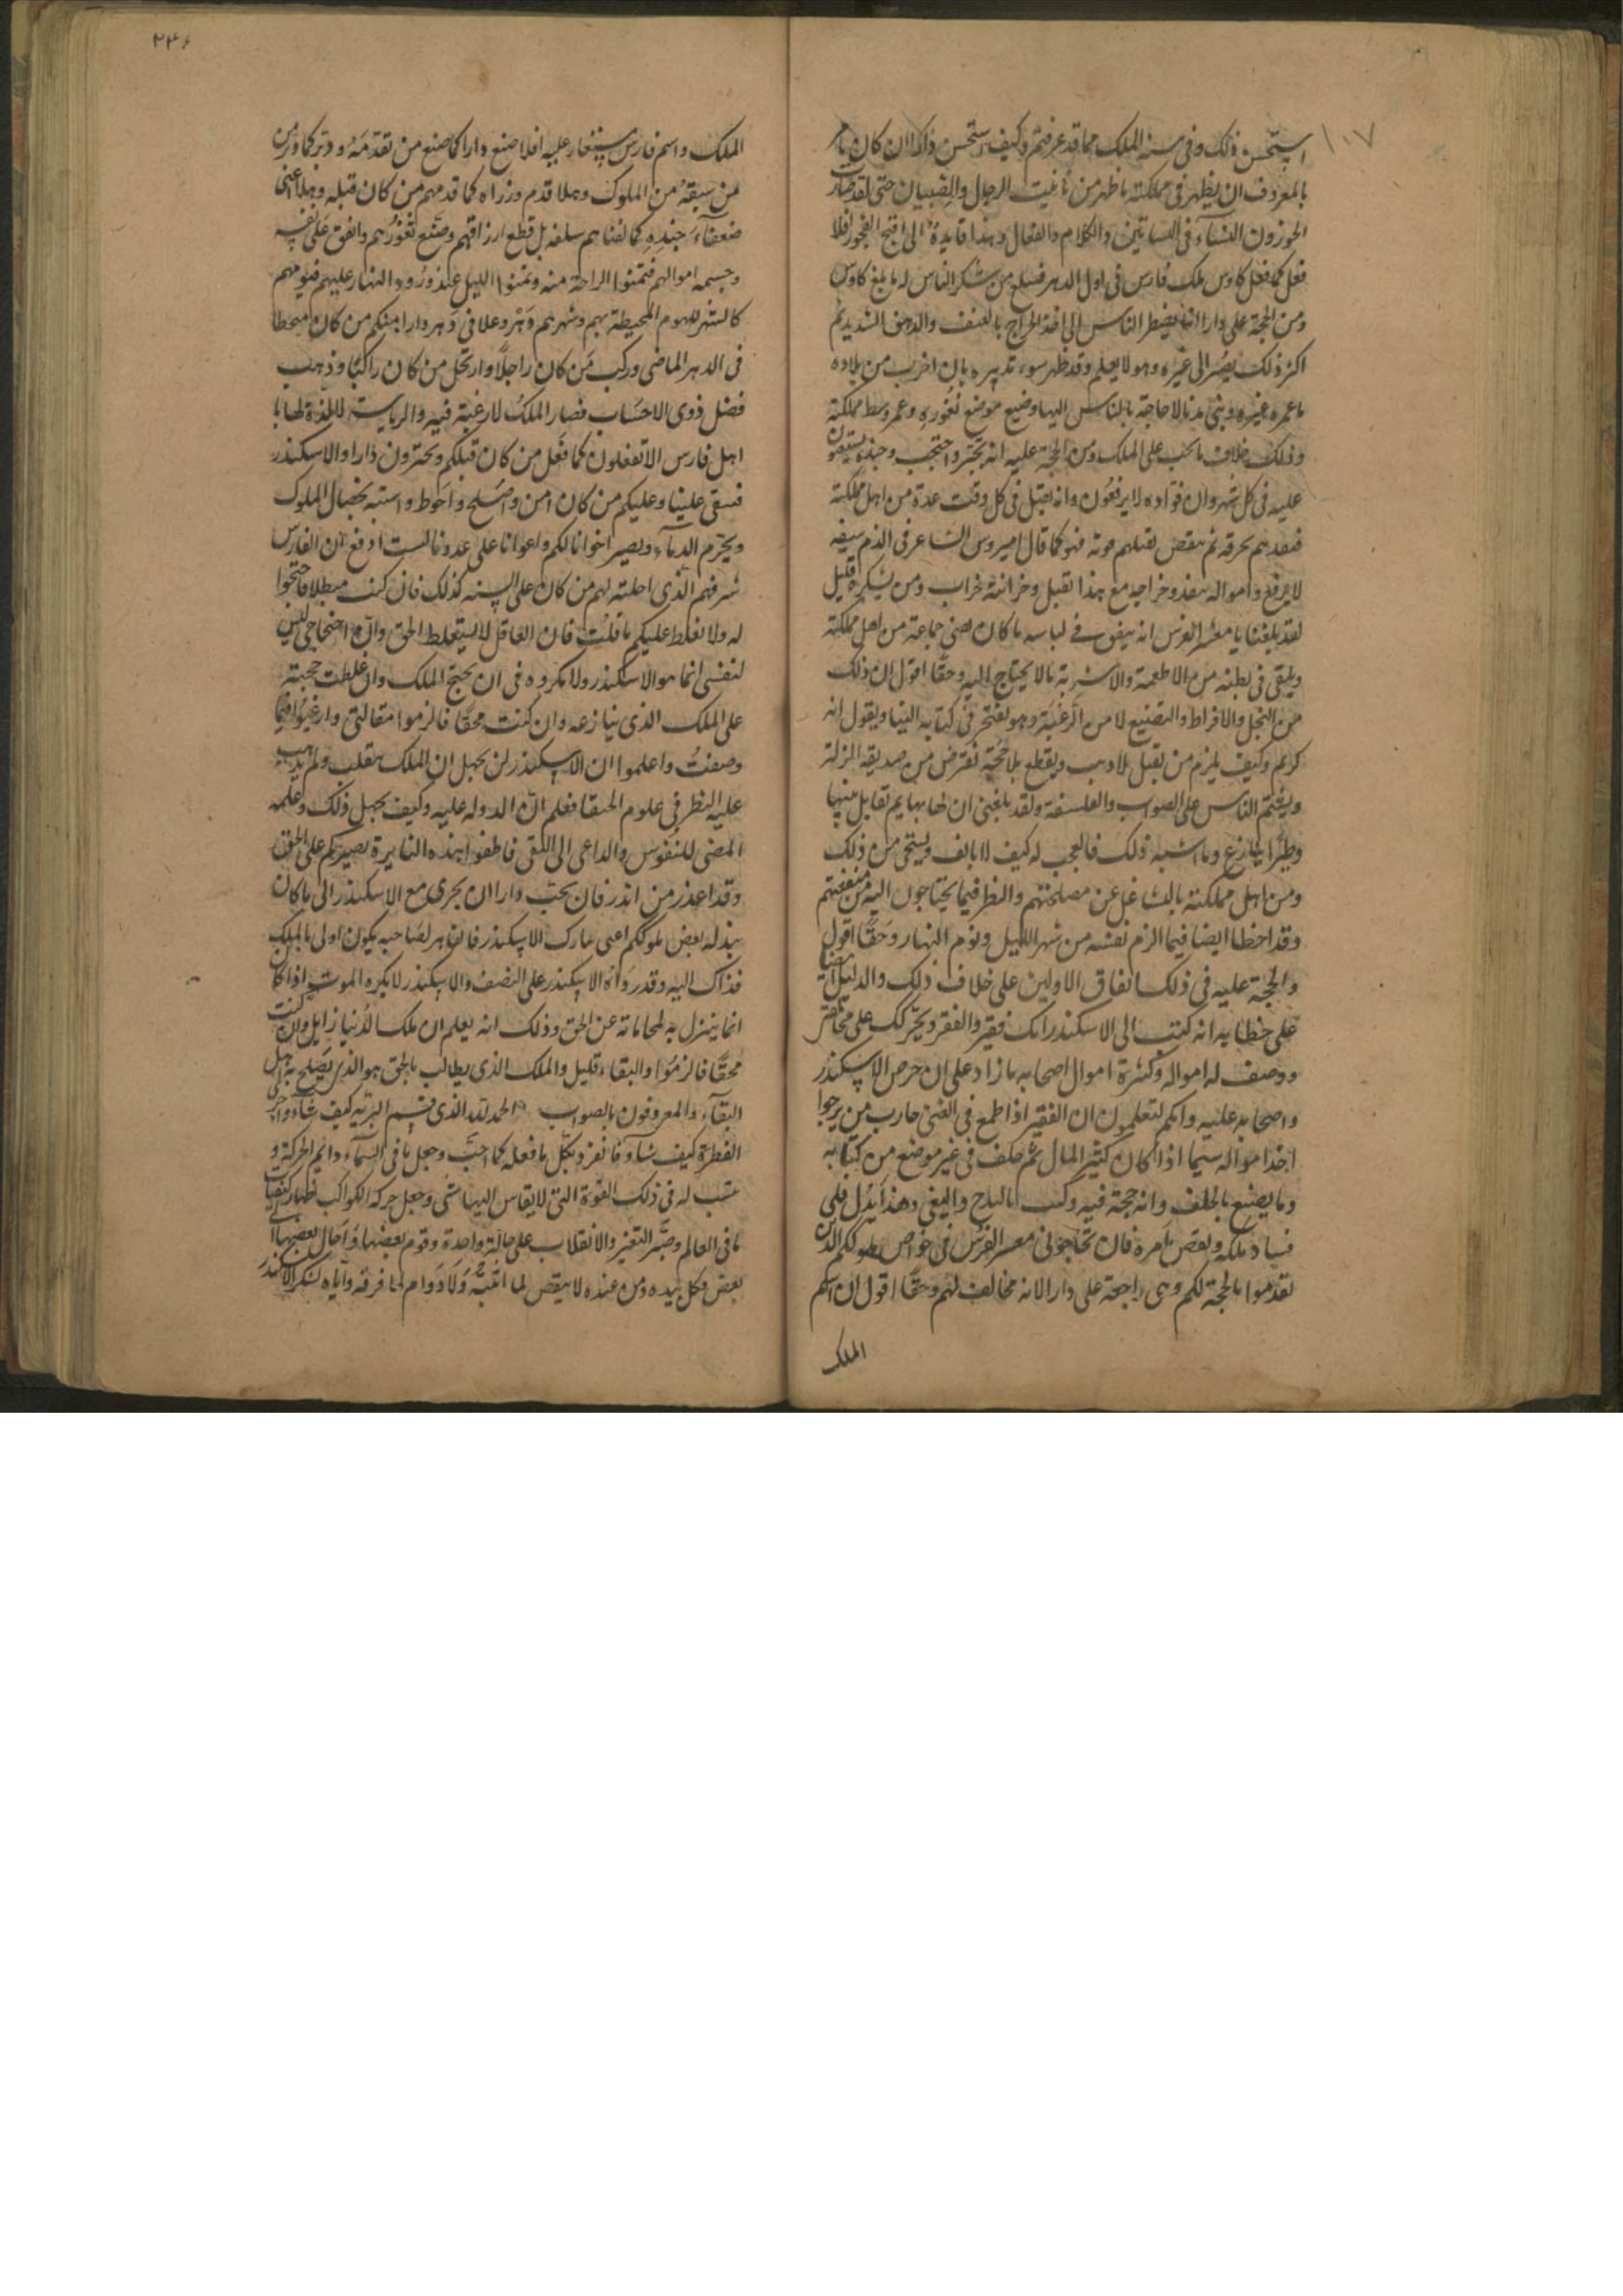 ١٠٧
استحسن ذلك وفى سنه الملك مما قد عرفتم وكيف يستحسن دارا ان كان يامر
بالمعروف ان يظهر فى مملكته ما ظهر من تانيث الرجال والصبيان حتى لقد صار
الحور دون النساء فى البساتين والكلام والفعال وهذا قايدة الى اقبح الفجور افلا
فعل كما فعل كاوس ملك فارس فى اول الدهر فبلغ من شكر الناس له ما بلغ كاوس
ومن الحجة على دارا انما يضطر الناس الى اخذ الخراج بالعنف والدهق الشديد ثم
اكثر ذلك يصير الى غيره وهو لا يعلم وقد ظهر سوء تدبيره بان اخرب من بلاده
ما عمره غيره وبنى مدنا لا حاجة بالناس اليها وضيع موضع ثغوره وعمر وسط مملكته
وذلك خلاف ما يجب على الملك ومن الحجة عليه انه تجبر واحتجب وجنده يستغيثون
عليه فى كل شهر وان قواده لا يرفعون وانه يقتل فى كل وقت عدة من اهل مملكته
فبعدهم بحرقه ثم ينقص بقتلهم قوته فهو كما قال اميروس الشاعر فى الذم سيفه
لا يرفع وامواله ينفد وخراجه مع هذا ثقيل وخزائنه خراب ومن يشكره قليل
لقد بلغنا يا معشر الفرس انه ينفق فى لباسه ما كان يغنى جماعة من اهل مملكته
ويلقى فى بطنه من الاطعمة والاشربة ما لا يحتاج اليه وحقا اقول ان ذلك
من البخل والافراط والتضييع لا من الرغبة وهو يفتخر فى كتابه الينا ويقول انه
كريم وكيف يكرم من يقتل بلا ذنب ويقطع بلا حجة تفترض من صديقه المنزلة
ويغتم الناس على الصواب والفلسفة ولقد بلغنى ان لها بهايم تقابل منها
وطيرا يجارح وما اشبه ذلك فالعجب له كيف لا يانف ويستحى من ذلك
ومن اهل مملكته بالتشاغل عن مصلحتهم والنظر فيما يحتاجون اليه من منفعتهم
وقد اخطا ايضا فيما الزم نفسه من سهر الليل ونوم النهار وحقا اقول
والحجة عليه فى ذلك اتفاق الاولين على خلاف ذلك والدليل ايضا
على خطايه انه كتب الى الاسكندر انك فقير والفقر ويحركك على محاقر
ووصف له امواله وكثرة اموال اصحابه ما زاد على ان حرص الاسكندر
واصحابه عليه وانكم لتعلمون ان الفقير اذا طمع فى الغنى حارب من يرجوا
اخذ امواله سيما اذا كان كثير المال ثم حلف فى غير موضع من كتابه
وما يصنع بالحلف وانه حجة فيه وكتب بالبدح والبغى وهذا يدل على
فساد ملكه ونقص امره فان تحاجونى معشر الفرس فى خواص ملوككم الذين
تقدموا بالحجة لكم وهى راجعة على دارا لانه مخالف لهم وحقا اقول ان اسم
الملك
٢٢٦
الملك واسم فارس مستعار عليه افلا صنع دارا كما صنع من تقدمه ودبر كما دبر من
من سبقه من الملوك وهلا قدم وزراه كما قدمهم من كان قبله وهلا اغنى
ضعفاء جنده كما لفناهم سلفه بل قطع ارزاقهم وضيع ثغورهم وانفق على نفسه
وجسمه اموالهم فتمنوا الراحة منه وتمنوا الليل عند ورود النهار عليهم فنومهم
كالسهر للهموم المحيطة بهم وسهرهم وتر وعلا فى دهر دارا منكم من كان منحطا
فى الدهر الماضى وركب من كان راجلا وارتحل من كان راكبا وذهب
فضل ذوى الاحساب فصار الملك لا رغبة فيه والرياسة لا لذة لها يا
اهل فارس الا تفعلون كما فعل من كان قبلكم وتحترون دارا والاسكندر
فيبقى علينا وعليكم من كان امن واصلح واحوط واشبه بخصال الملوك
ويحرم الدماء ونصير اخوانا لكم واعوانا على عدونا لست ادفع ان الفارس
شرفهم الذى احلته لهم من كان على السنه كذلك فان كنت مبطلا فاحتجوا
له ولا تغلط عليكم ما قلت فان العاقل لا يستغلط الحق وان احتجاجى ليس
لنفسى انما هو الاسكندر ولا مكروه فى ان يحتج الملك وان غلطت حجته
على الملك الذى ينازعه وان كنت محقا فالزموا مقالتى وارغبوا فيما
وصفت واعلموا ان الاسكندر لن يجهل ان الملك ينقلب ولم يذهب
عليه النظر فى علوم الحنفا فعلم ان الدوله عليه وكيف يجهل ذلك ومعلمه
المضى للنفوس والداعى الى التقى فاطفوا هذه النايرة بصيرتكم على الحق
وقد اعذر من انذر فان يحب دارا ان يجرى مع الاسكندر الى ما كان
بذله بعض ملوككم اعنى مبارك الاسكندر فالقاهر لصاحبه يكون اولى بالملك
فذاك اليه وقد رواه الاسكندر على النصف والاسكندر لا يكره الموت اذا كان
انما ينزل به لمحاماته عن الحق وذلك انه يعلم ان ملك الدنيا زايل وان كنت
محقا فالزموا والبقاء قليل والملك الذى يطالب بالحق هو الذى يصلح به اهل
البقاء والمعروفون بالصواب الحمد لله الذى قسم البرية كيف شاء واجرى
الفطرة كيف شاء فانفرد بكل ما فعله كما احب وجعل ما فى السماء دايم الحركة و
سبب له فى ذلك القوة التى لا يقاس اليها شى وجعل حركة الكواكب
ما فى العالم وصير التغير والانقلاب على حالة واحدة وقوم بعضها واحال بعضها الى
بعض فكل بيده ومن عنده لا ينقص لما اثبته ولا دوام لما فرقه واياه لشكر الاسكندر